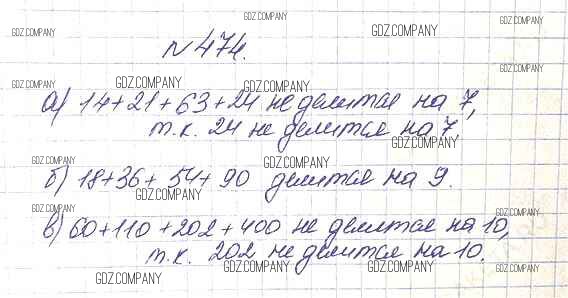 GDZ.COMPANY GDZ.COMPANY GDZ.COMPANY GDZ.COMPANY
№474.
GDZ.COMPANY GDZ.COMPANY GDZ.COMPANY GDZ.COMPANY
а) 14+21+63+24 не делится на 7,
т.к. 24 не делится на 7
GDZ.COMPANY
GDZ.COMPANY GDZ.COMPANY
б) 18+36+54+90 делится на 9.
GDZ.COMPANY
GDZ.COMPANY GDZ.COMPANY GDZ.COMPANY
в) 60+110+202+400 не делится на 10,
т.к. 202 не делится на 10.
GDZ.COMPANY GDZ.COMPANY GDZ.COMPANY GDZ.COMPANY